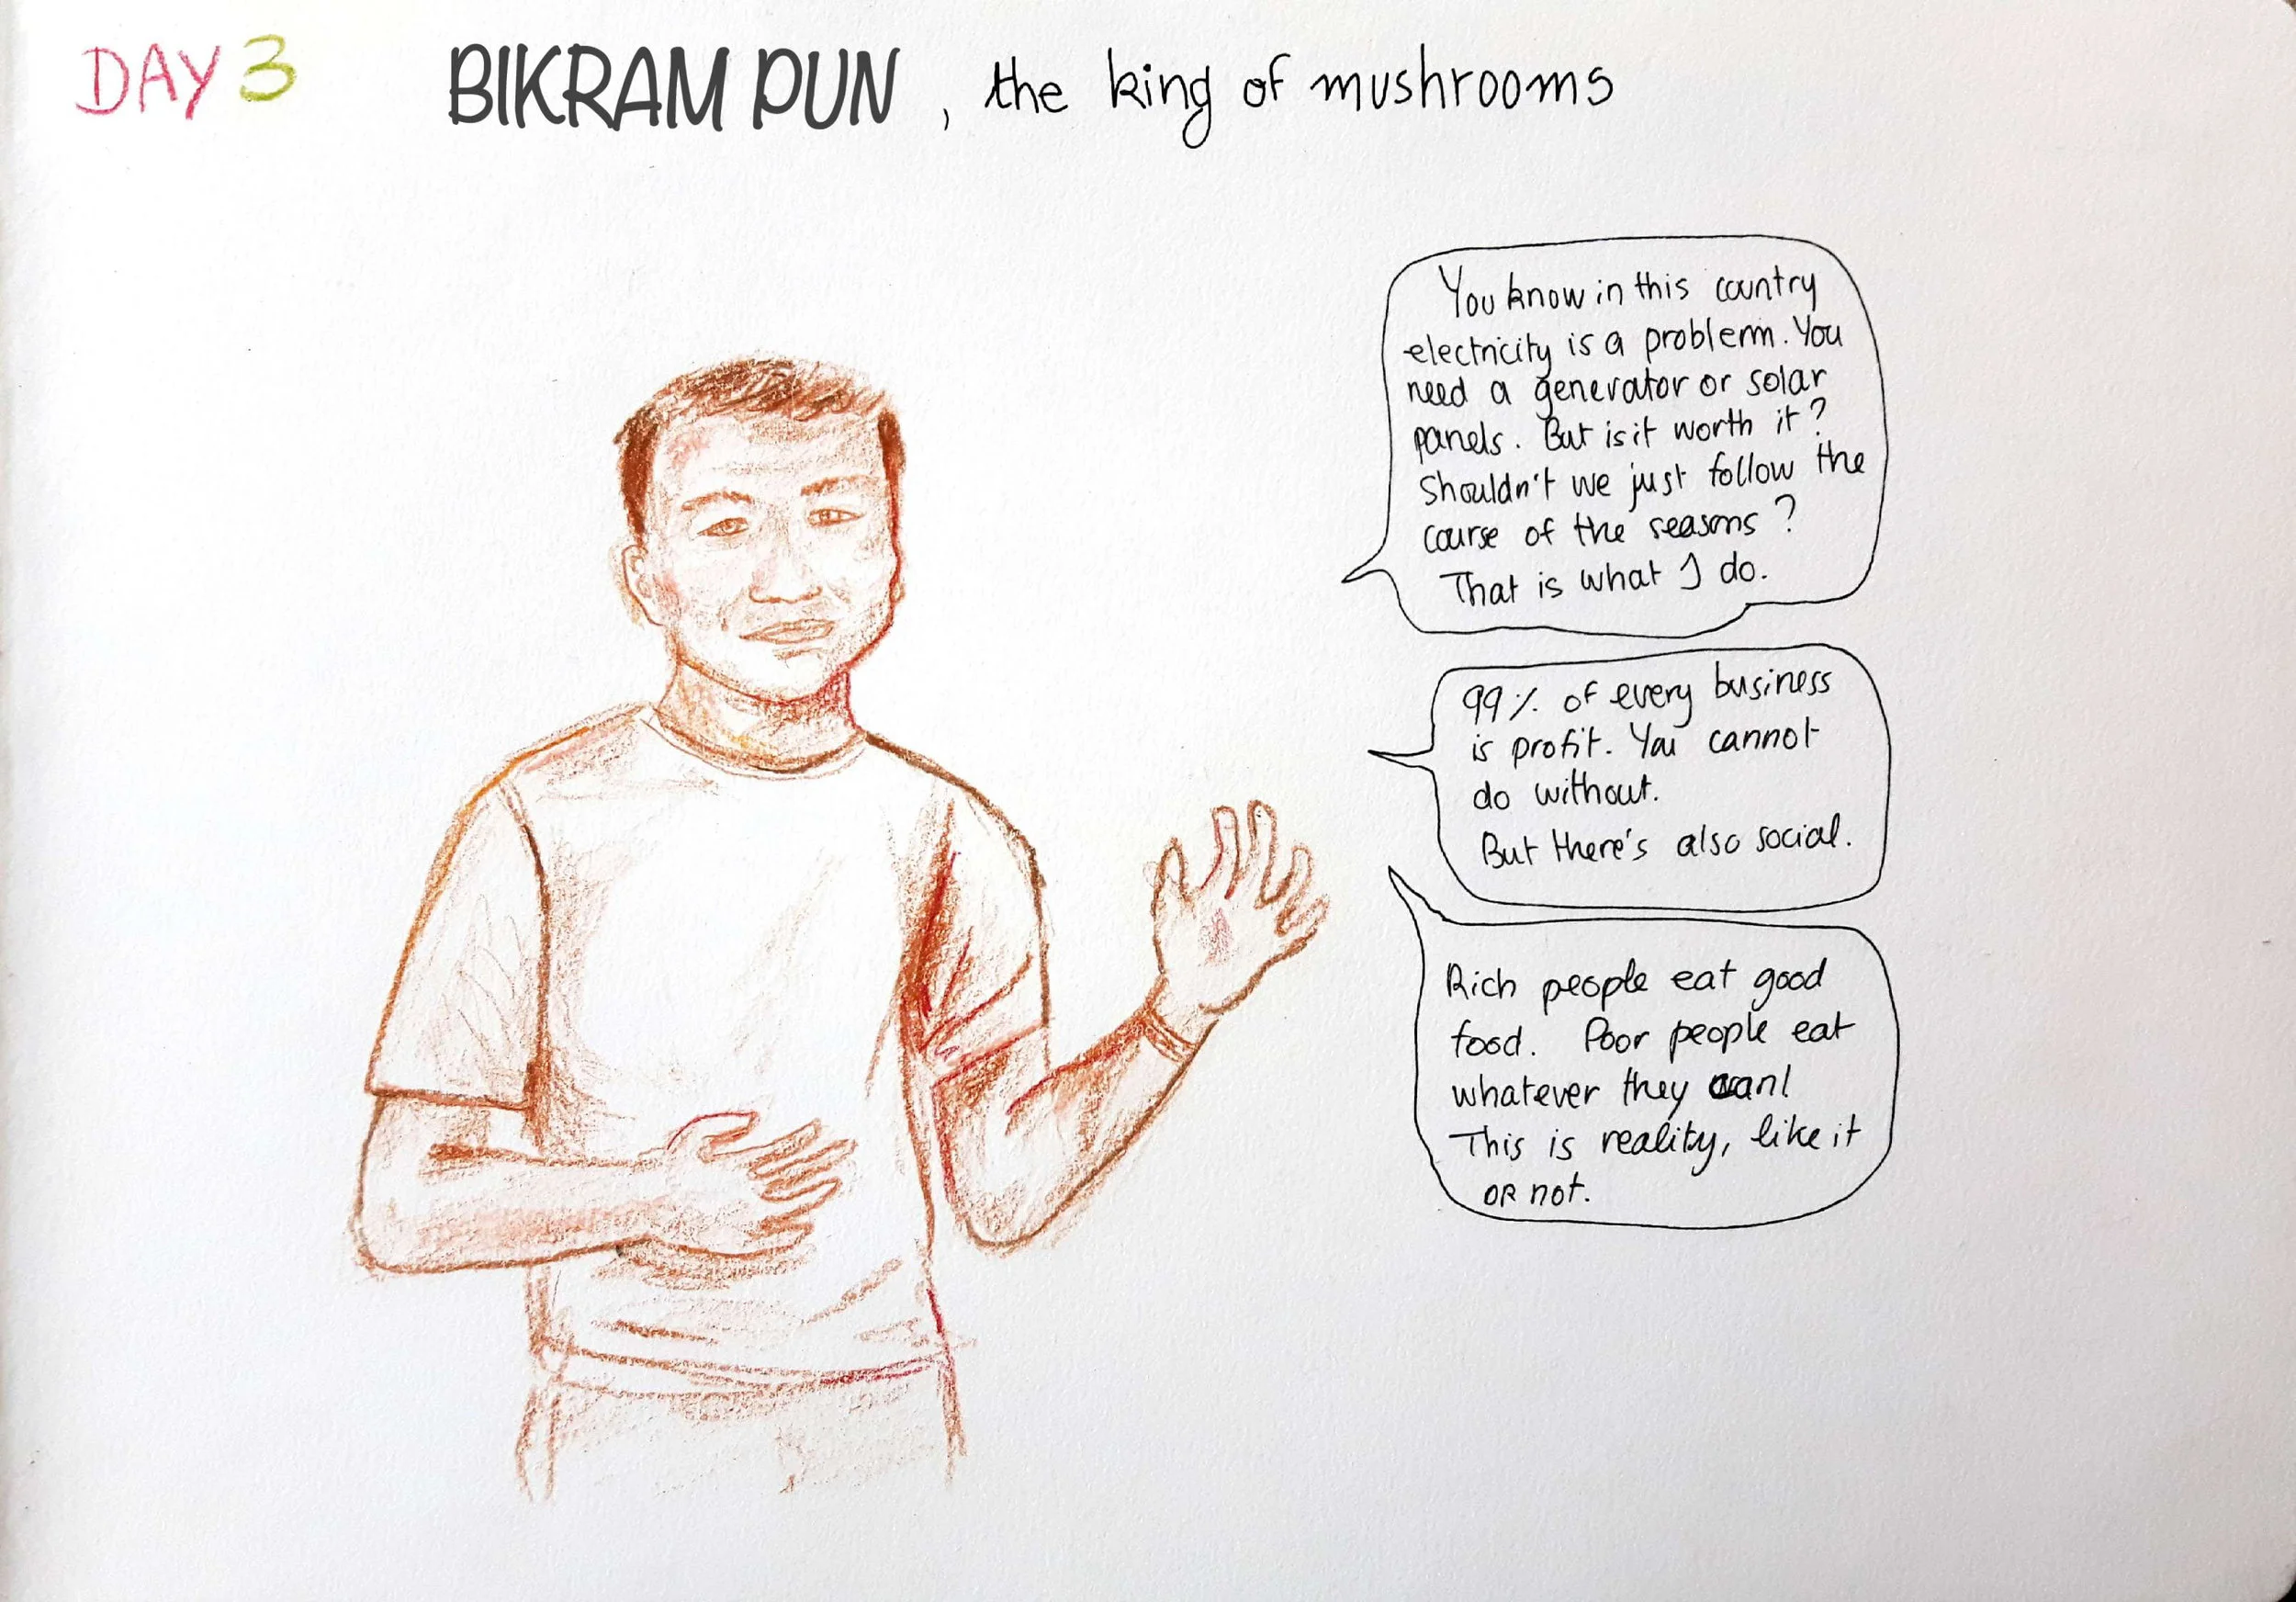 DAY 3 BIKRAM PUN, the king of mushrooms
You know in this country
electricity is a problem. You
need a generator or solar
panels. But is it worth it?
Shouldn't we just follow the
course of the seasons?
That is what I do.
99% of every business
is profit. You cannot
do without.
But there's also social.
Rich people eat good
food. Poor people eat
whatever they can!
This is reality, like it
OR not.